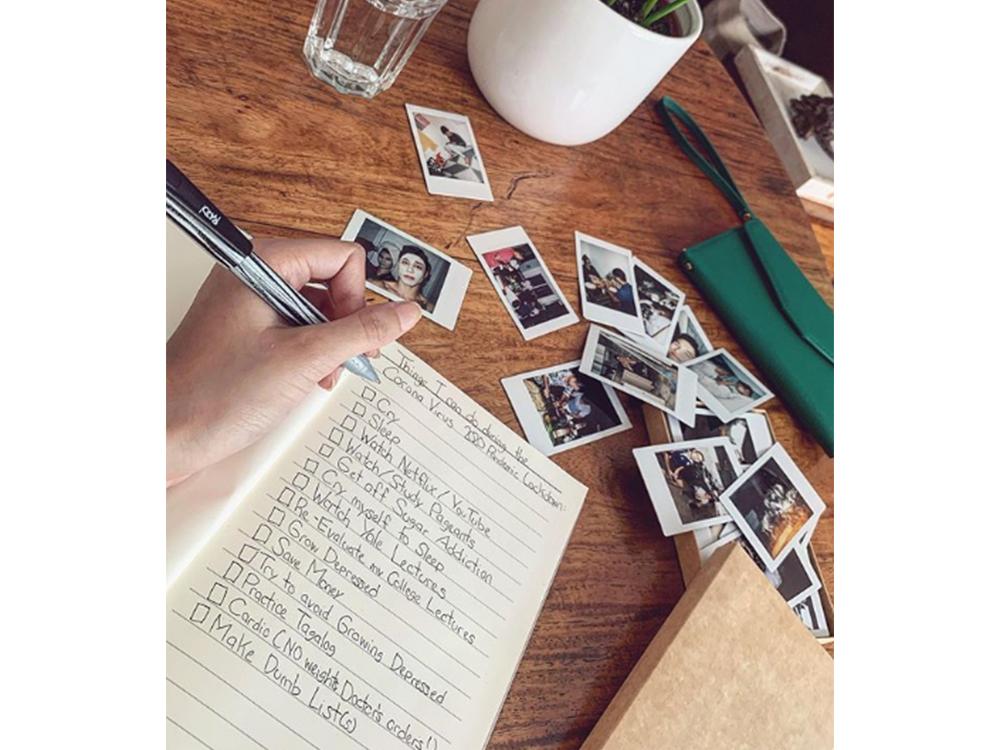 Things I can do during the
Corona Virus 2020 Pandemic Lockdown:
Cry
Sleep
Watch Netflix/YouTube
Watch/Study Pageants
Get off Sugar Addiction
Cry myself to Sleep
Watch Yale Lectures
Re-Evaluate my College Lectures
Grow Depressed
Save Money
Try to avoid Growing Depressed
Practice Tagalog
Cardio (NO weights, Doctor's orders!)
Make Dumb List(s)